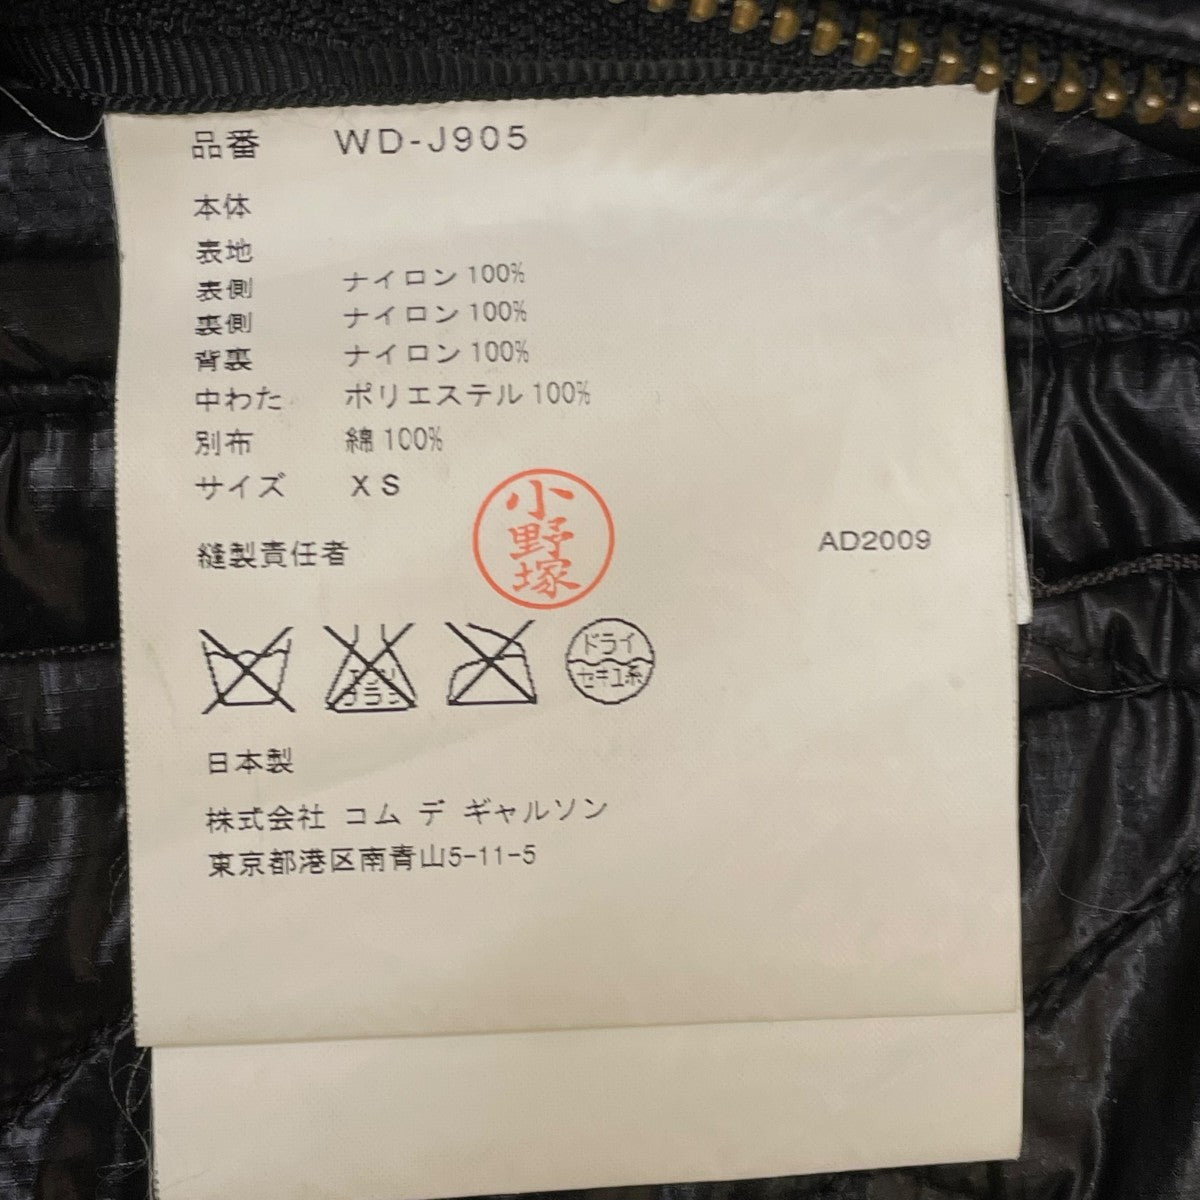 品番 WD-J905
本体
表地
表側 ナイロン 100%
裏側 ナイロン 100%
背裏 ナイロン 100%
中わた ポリエステル 100%
別布 綿 100%
サイズ XS
縫製責任者 小野塚 AD2009
エンソ
フラシ
ドライ
セキユ系
日本製
株式会社 コム デ ギャルソン
東京都港区南青山5-11-5